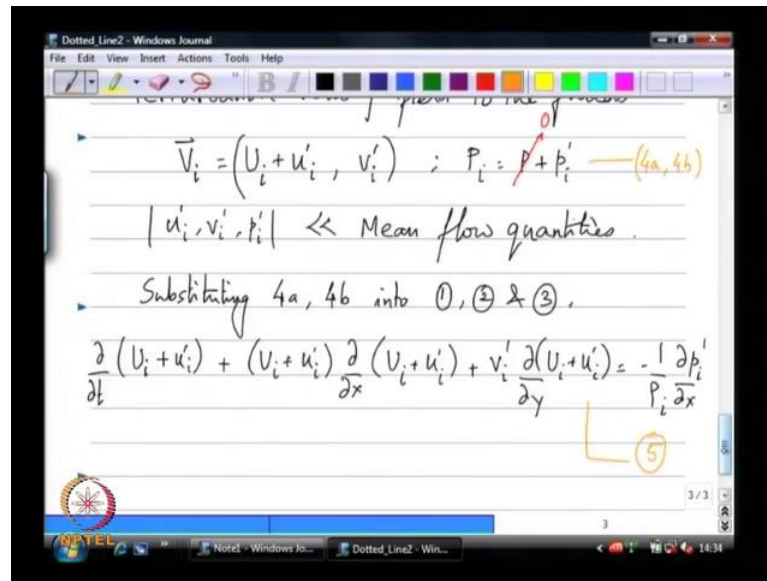 Dotted_Line2 - Windows Journal
File Edit View Insert Actions Tools Help
B I
to the
V⃗ᵢ = (Uᵢ + u'ᵢ , v'ᵢ) ; Pᵢ = p + p'ᵢ — (4a, 4b)
0
|u'ᵢ, v'ᵢ, p'ᵢ| << Mean flow quantities.
Substituting 4a, 4b into ①, ② & ③.
∂/∂t (Uᵢ + u'ᵢ) + (Uᵢ + u'ᵢ) ∂/∂x (Uᵢ + u'ᵢ) + v'ᵢ ∂(Uᵢ + u'ᵢ)/∂y = - 1/ρᵢ ∂p'ᵢ/∂x
⑤
3/3
3
NPTEL
Note1 - Windows Jo...
Dotted_Line2 - Win...
14:34